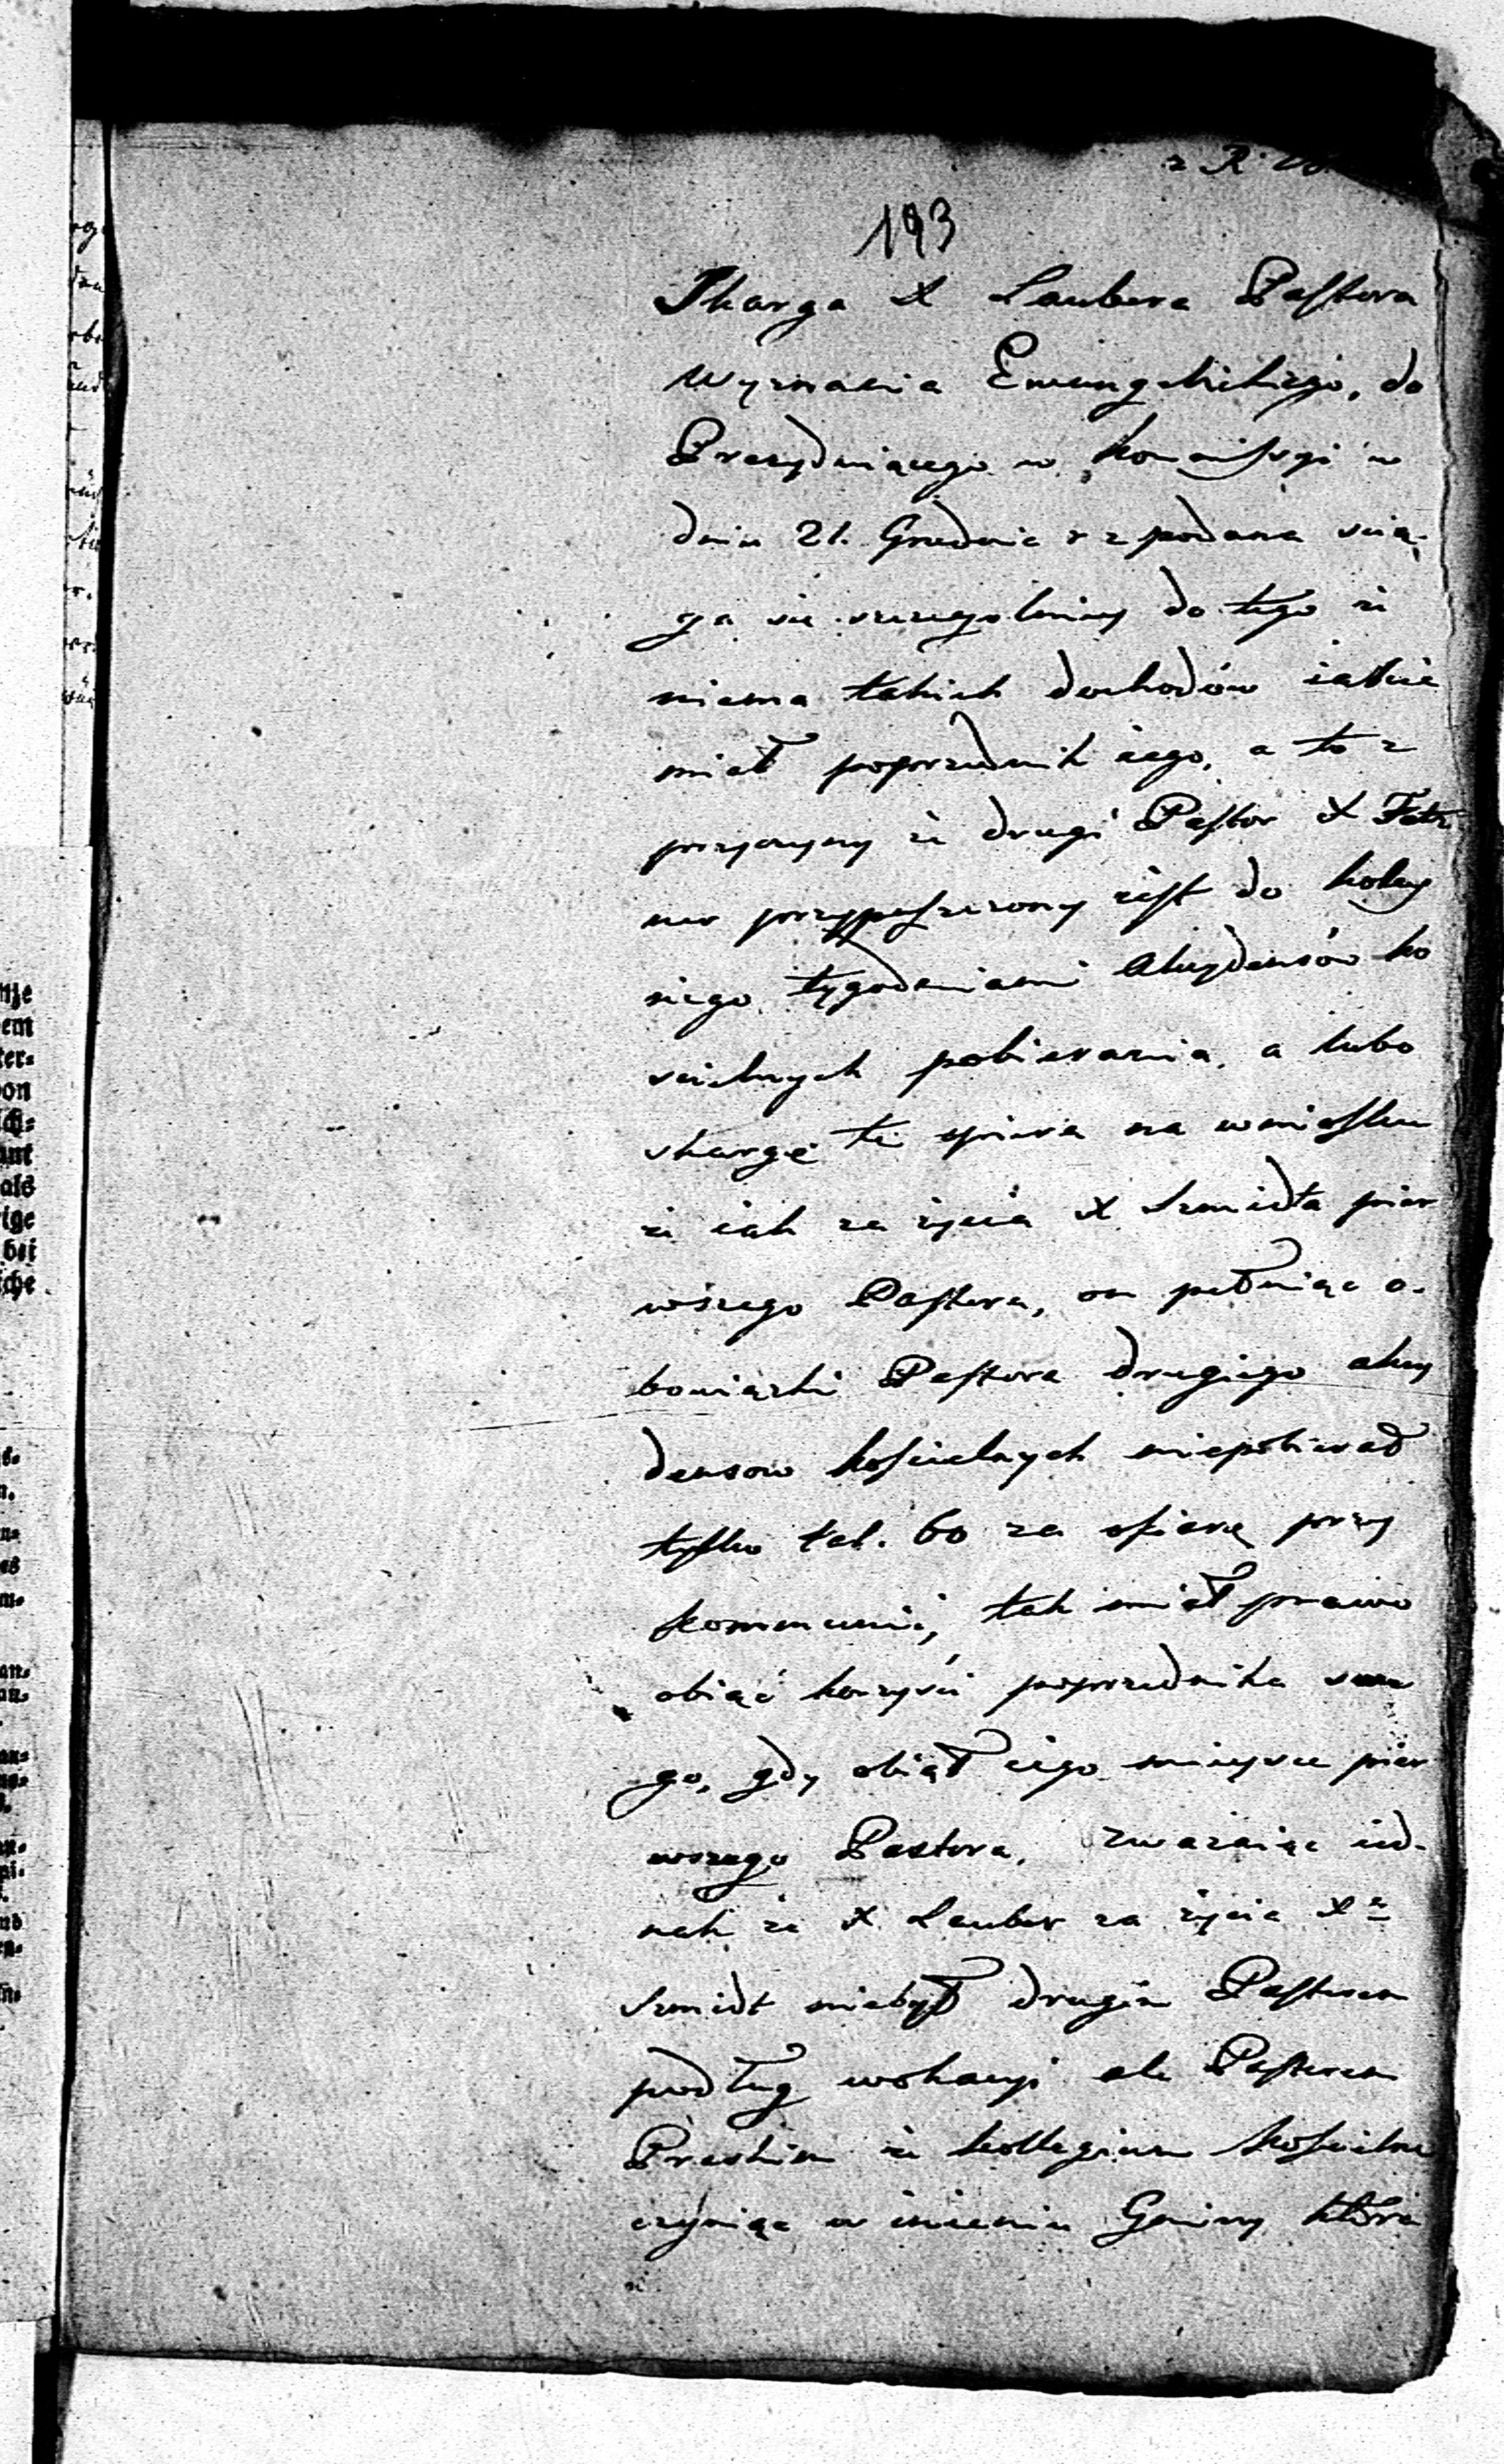 193
Skarga X Laubera Pastora
Wyznania Ewangelickiego, do
Prezyduiącego w Kommissyi w
dniu 21. Grudnia r z podana scią-
ga się szczegolniey do tego że
niema takich dochodów iakie
miał poprzednik iego, a to z
przyczyny że drugi Pastor X Fetz
ner przypuszczony iest do koley
nego tygodniami Akcydensów ko
scielnych pobierania, a lubo
skargę tę opiera na wniosku
że iak za życia X Szmidta pier
wszego Pastora, on pełniąc o-
bowiązki Pastora drugiego akcy
densow kościelnych niepobierał
tylko tal. 60 za ofiarę przy
kommunii, tak miał prawo
obiąć korzyści poprzednika swe
go, gdy obiął iego mieysce pier
wszego Pastora, zważaiąc ied-
nak że X Lauber za życia Xa
Szmidt niebył drugim Pastorem
podług wokacyi ale Pastorem
że kollegium kościelne
czyniąc w imieniu Gminy która